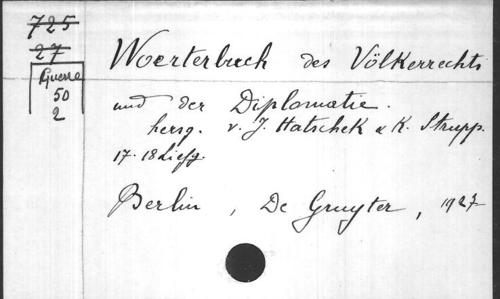 725
27
Guerre
50
2
Woerterbuch des Völkerrechts
und der Diplomatie.
hersg. v. J. Hatschek & K. Strupp.
17-18 Liefg.
Berlin, De Gruyter, 1927